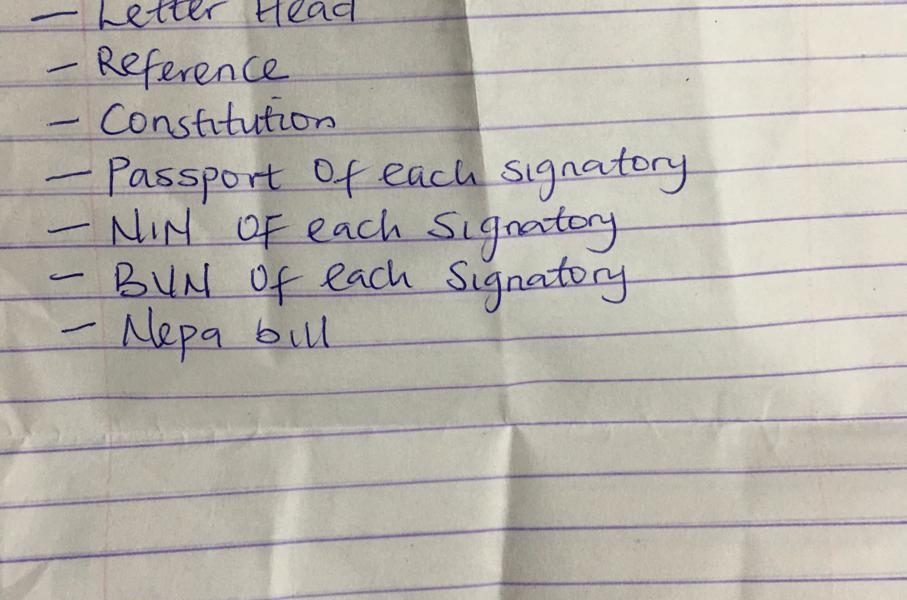 - Letter Head
- Reference
- Constitution
- Passport Of each signatory
- NIN OF each Signatory
- BVN Of each Signatory
- Nepa bill